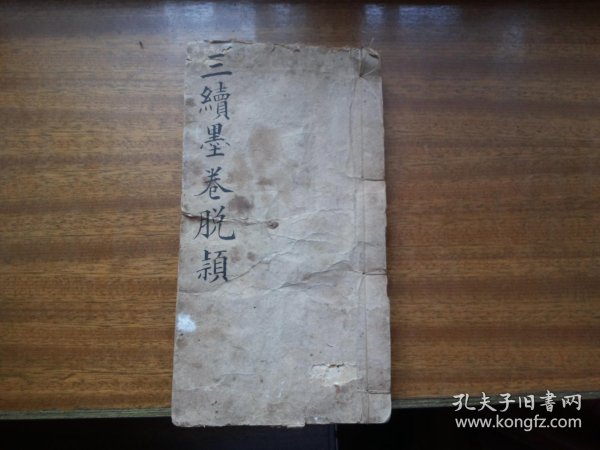 三續墨卷脫穎
孔夫子旧书网
www.kongfz.com